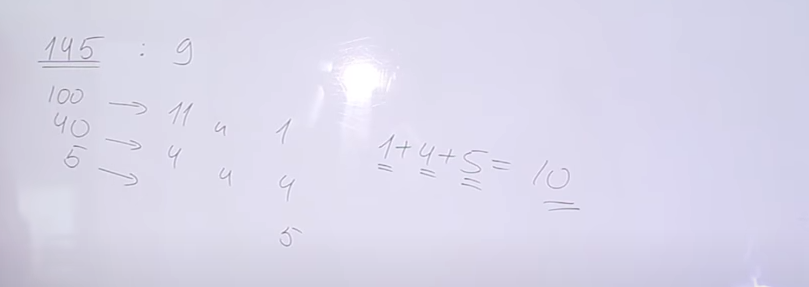 145 : 9
100 → 11 и 1
40 → 4 и 4
5 → 5
1+4+5= 10